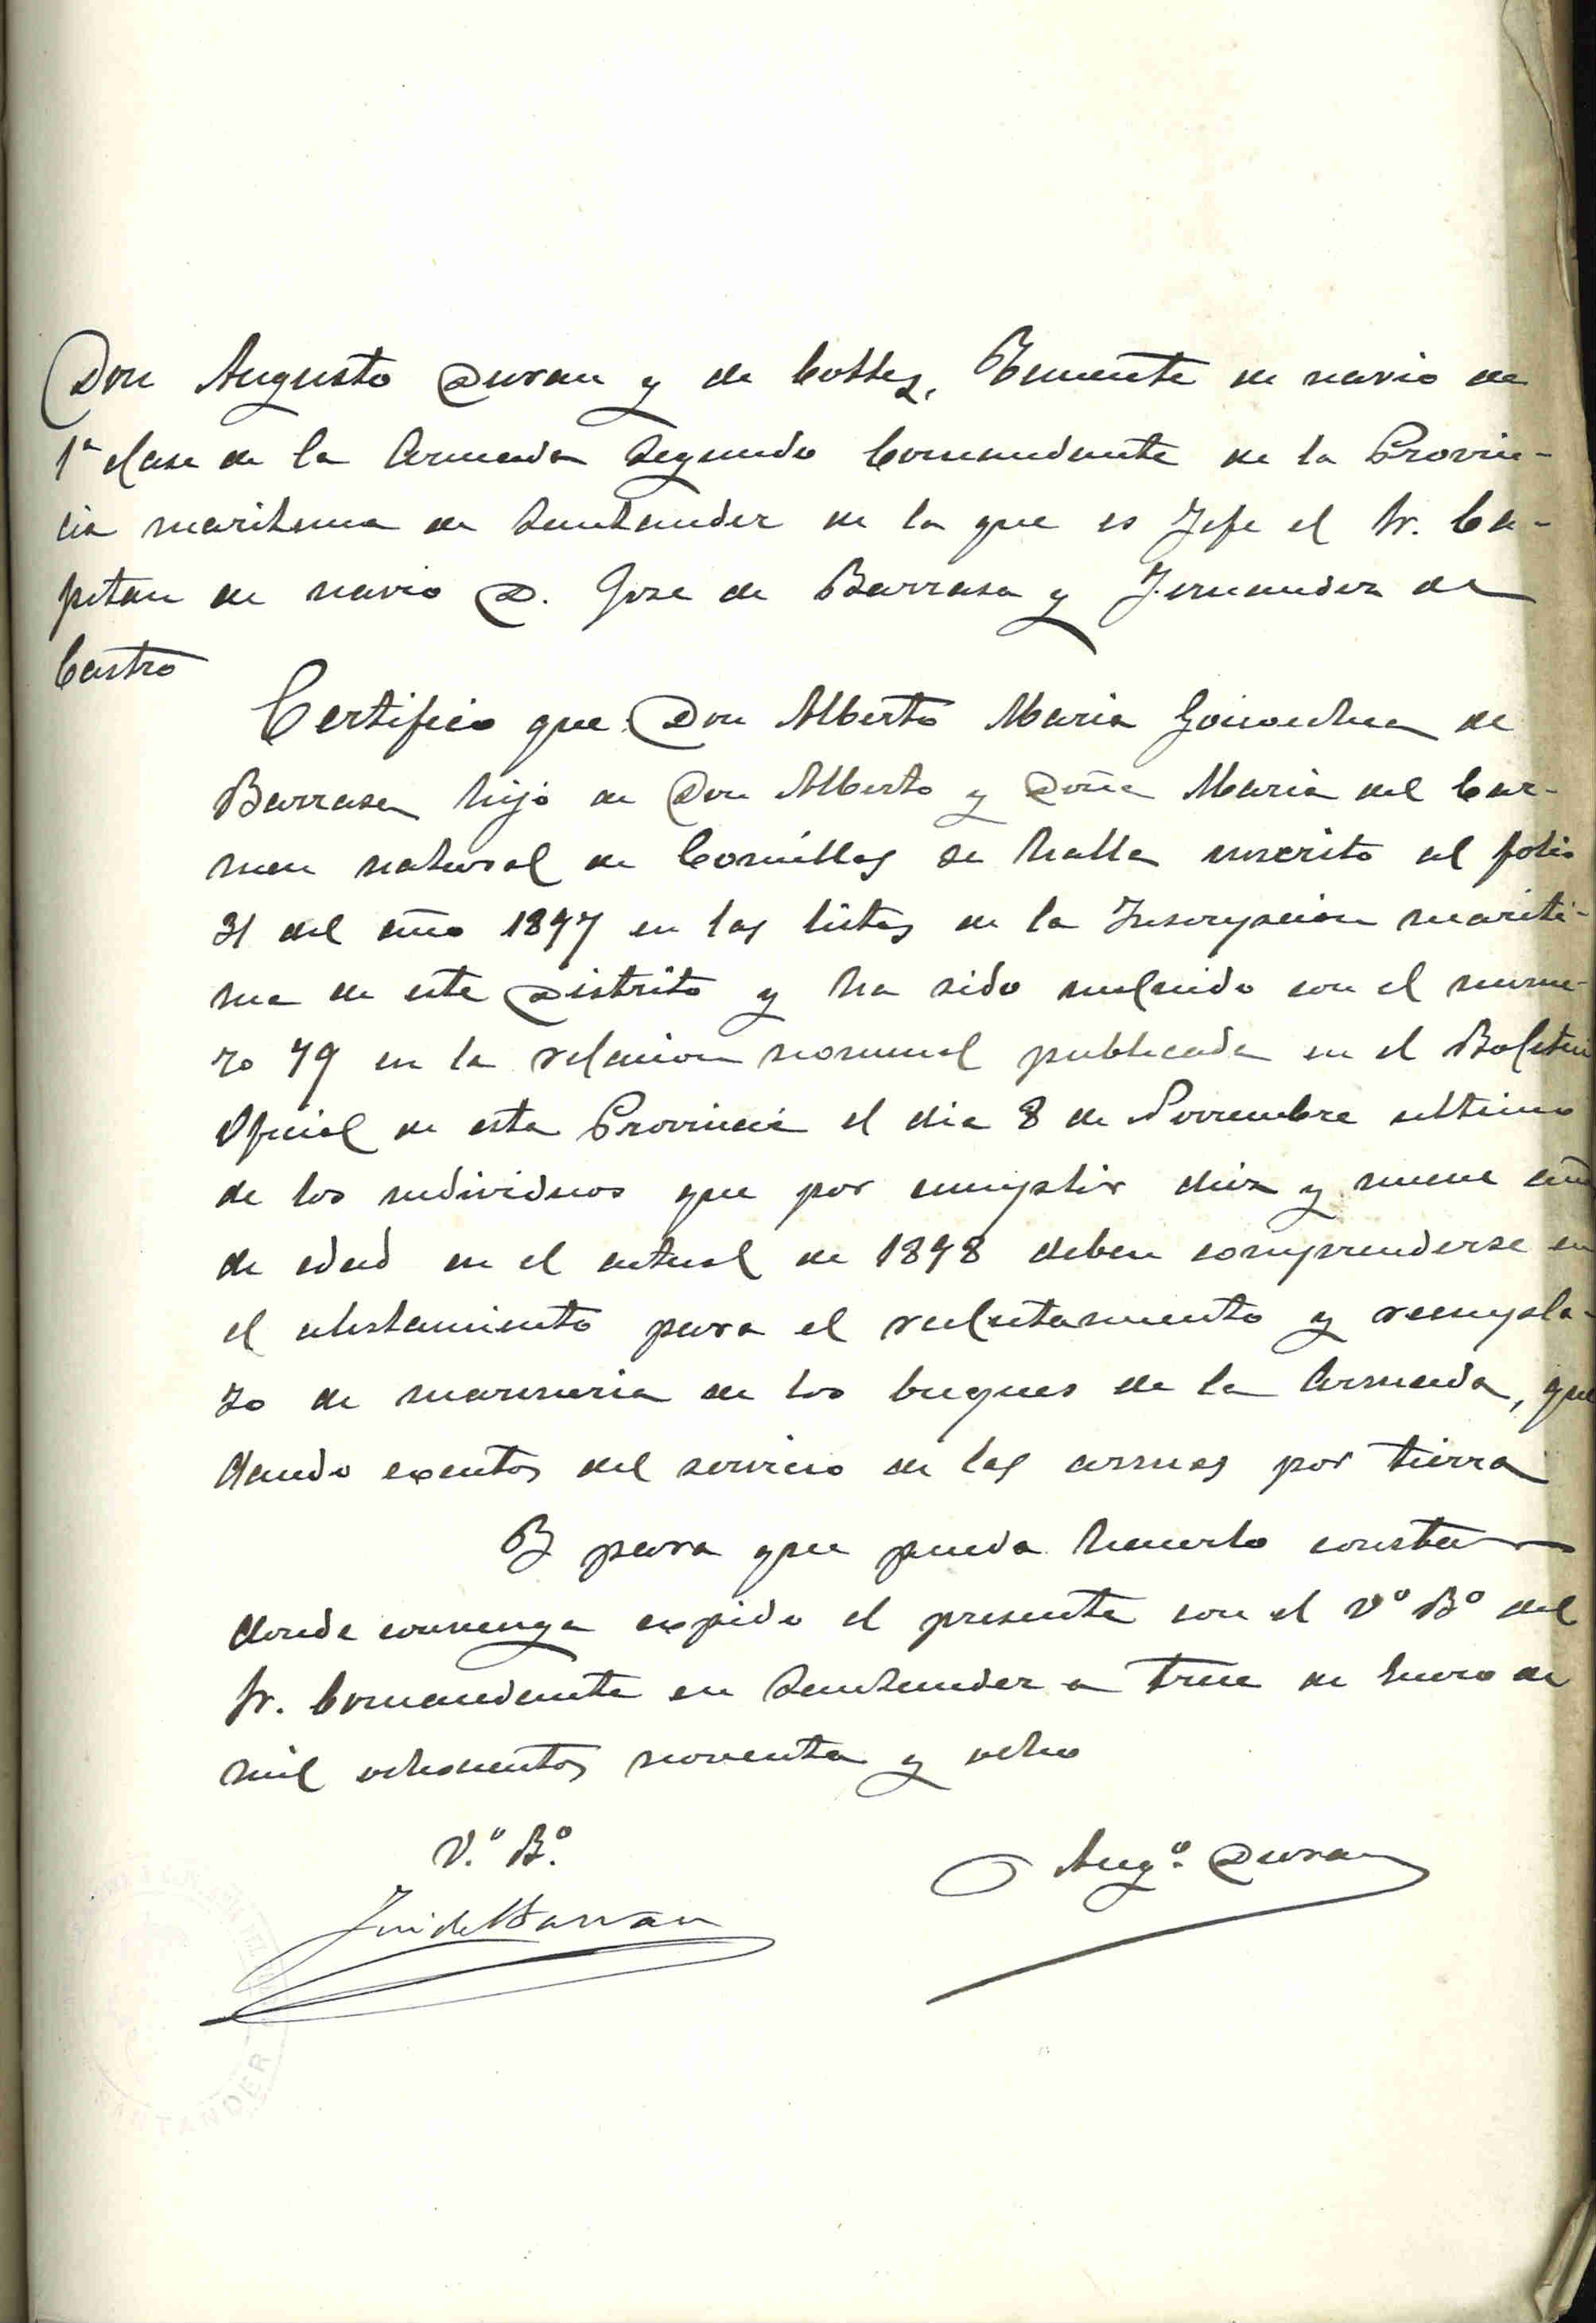 Don Augusto Duran y de Cottes, Teniente de navio de
1ª clase de la Armada Segundo Comandante de la Provin-
cia maritima de Santander de la que es Jefe el Sr. Ca-
pitan de navio D. Jose de Barrasa y Fernandez de
Castro
Certifico que Don Alberto Maria Goicoechea de
Barrasa hijo de Don Alberto y Doña Maria del Car-
men natural de Comillas se halla inscrito al folio
31 del año 1897 en las listas de la Inscripcion mariti-
ma de este Distrito y ha sido incluido con el nume-
ro 79 en la relacion nominal publicada en el Boletin
Oficial de esta Provincia el dia 8 de Noviembre ultimo
de los individuos que por cumplir diez y nueve años
de edad en el actual de 1898 deben comprenderse en
el alistamiento para el reclutamiento y reempla-
zo de marineria de los buques de la Armada, que
dando exentos del servicio de las armas por tierra
Y para que pueda hacerlo constar
donde convenga expido el presente con el Vº Bº del
Sr. Comandante en Santander a trece de Enero de
mil ochocientos noventa y ocho
V.º B.º
Augº. Duran
José de Barrasa
SANTANDER